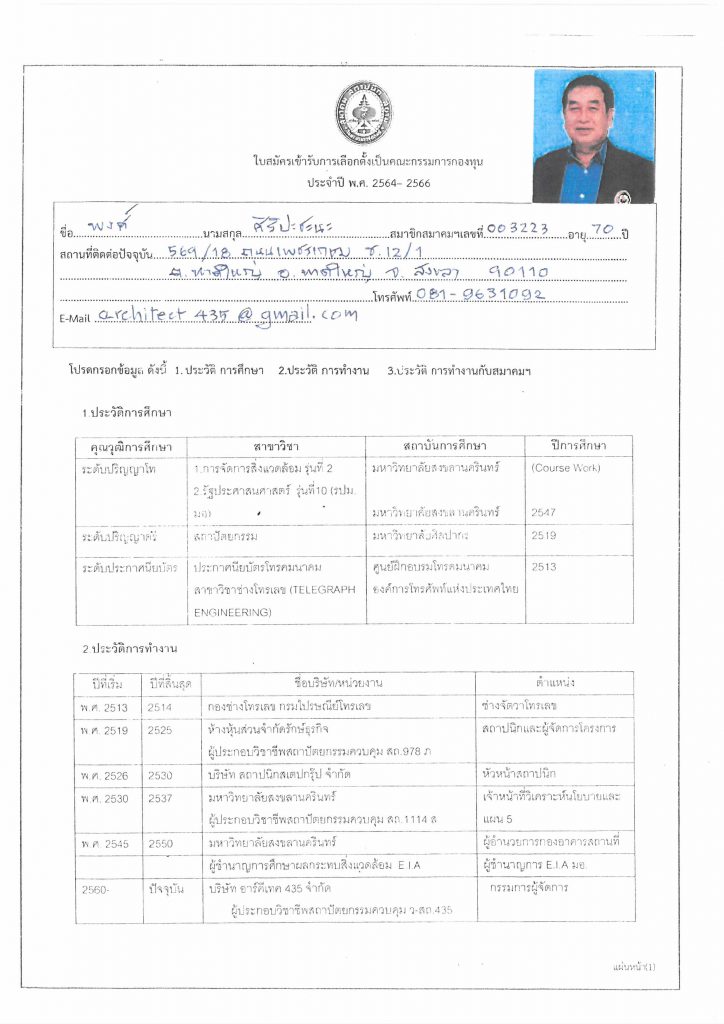 ใบสมัครเข้ารับการเลือกตั้งเป็นคณะกรรมการกองทุน
ประจำปี พ.ศ. 2564– 2566
ชื่อ พงศ์ นามสกุล ศิริปะชะนะ สมาชิกสมาคมฯเลขที่ 003223 อายุ 70 ปี
สถานที่ติดต่อปัจจุบัน 569/18 ถนนเพชรเกษม ซ.12/1
ต.หาดใหญ่ อ.หาดใหญ่ จ.สงขลา 90110
โทรศัพท์ 081-9631092
E-Mail architect435@gmail.com
โปรดกรอกข้อมูล ดังนี้ 1. ประวัติ การศึกษา 2.ประวัติ การทำงาน 3.ประวัติ การทำงานกับสมาคมฯ
1.ประวัติการศึกษา
คุณวุฒิการศึกษา สาขาวิชา สถาบันการศึกษา ปีการศึกษา
ระดับปริญญาโท 1.การจัดการสิ่งแวดล้อม รุ่นที่ 2 มหาวิทยาลัยสงขลานครินทร์ (Course Work)
2.รัฐประศาสนศาสตร์ รุ่นที่10 (รปม.
มอ) มหาวิทยาลัยสงขลานครินทร์ 2547
ระดับปริญญาตรี สถาปัตยกรรม มหาวิทยาลัยศิลปากร 2519
ระดับประกาศนียบัตร ประกาศนียบัตรโทรคมนาคม ศูนย์ฝึกอบรมโทรคมนาคม 2513
สาขาวิชาช่างโทรเลข (TELEGRAPH องค์การโทรศัพท์แห่งประเทศไทย
ENGINEERING)
2.ประวัติการทำงาน
ปีที่เริ่ม ปีที่สิ้นสุด ชื่อบริษัท/หน่วยงาน ตำแหน่ง
พ.ศ. 2513 2514 กองช่างโทรเลข กรมไปรษณีย์โทรเลข ช่างจัตวาโทรเลข
พ.ศ. 2519 2525 ห้างหุ้นส่วนจำกัดรักษ์ธุรกิจ สถาปนิกและผู้จัดการโครงการ
ผู้ประกอบวิชาชีพสถาปัตยกรรมควบคุม สถ.978 ภ
พ.ศ. 2526 2530 บริษัท สถาปนิกสเตปกรุ๊ป จำกัด หัวหน้าสถาปนิก
พ.ศ. 2530 2537 มหาวิทยาลัยสงขลานครินทร์ เจ้าหน้าที่วิเคราะห์นโยบายและ
ผู้ประกอบวิชาชีพสถาปัตยกรรมควบคุม สถ.1114 ส แผน 5
พ.ศ. 2545 2550 มหาวิทยาลัยสงขลานครินทร์ ผู้อำนวยการกองอาคารสถานที่
ผู้ชำนาญการศึกษาผลกระทบสิ่งแวดล้อม E.I.A ผู้ชำนาญการ E.I.A มอ.
2560- ปัจจุบัน บริษัท อาร์คีเทค 435 จำกัด กรรมการผู้จัดการ
ผู้ประกอบวิชาชีพสถาปัตยกรรมควบคุม ว-สถ.435
แผ่นหน้า(1)